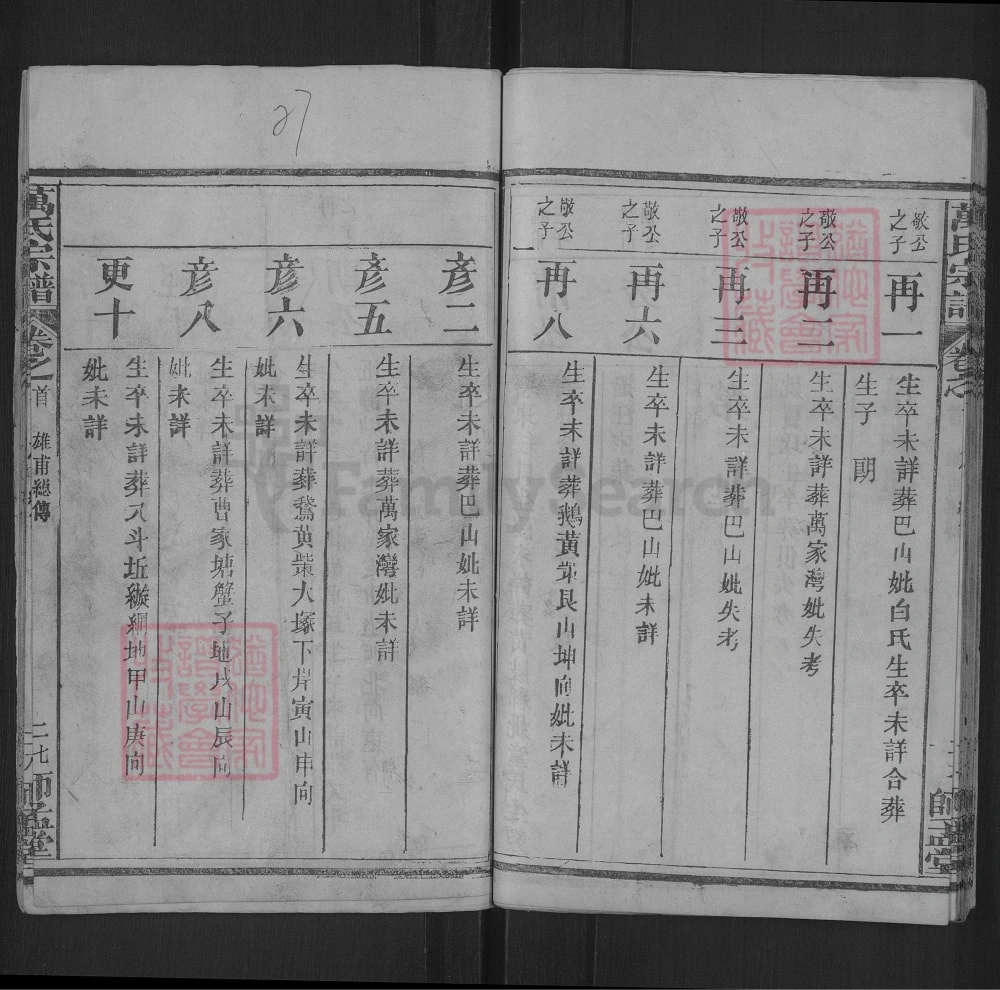 27
萬氏宗譜
卷之
師孟堂
敬公之子
再一
生卒未詳葬巴山妣白氏生卒未詳合葬
生子 朗
敬公之子
再二
生卒未詳葬萬家灣妣失考
敬公之子
再三
生卒未詳葬巴山妣失考
敬公之子
再六
生卒未詳葬巴山妣未詳
敬公之子
再八
生卒未詳葬鵝黃崬艮山坤向妣未詳
彥二
生卒未詳葬巴山妣未詳
彥五
生卒未詳葬萬家灣妣未詳
彥六
生卒未詳葬鵞黃崬大塚下岸寅山申向
妣未詳
彥八
生卒未詳葬曹家塘蟹子地戌山辰向
妣未詳
更十
生卒未詳葬八斗坵縱綱地甲山庚向
妣未詳
萬氏宗譜
卷之首
雄甫總傳
二七
師孟堂
FamilySearch